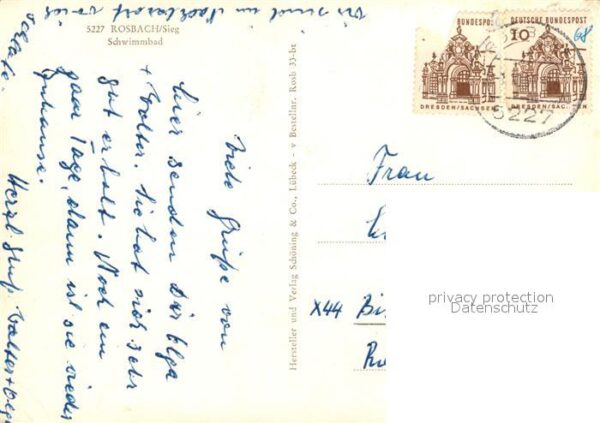 5227 ROSBACH/Sieg
Schwimmbad
Viele Grüße von
hier senden Dir Olga
+ Walter. Sie hat sich sehr
gut erholt. Noch ein
paar Tage, dann ist sie wieder
zuhause.
Herzl. Gruß Walter + Olga
Wir sind im
Hersteller und Verlag Schöning & Co., Lübeck - v Bestellnr. Rosb 33-bz
BUNDESPOST
DRESDEN/SACHSEN
DEUTSCHE BUNDESPOST
10
DRESDEN/SAC
68
5227
Frau
X44
privacy protection
Datenschutz